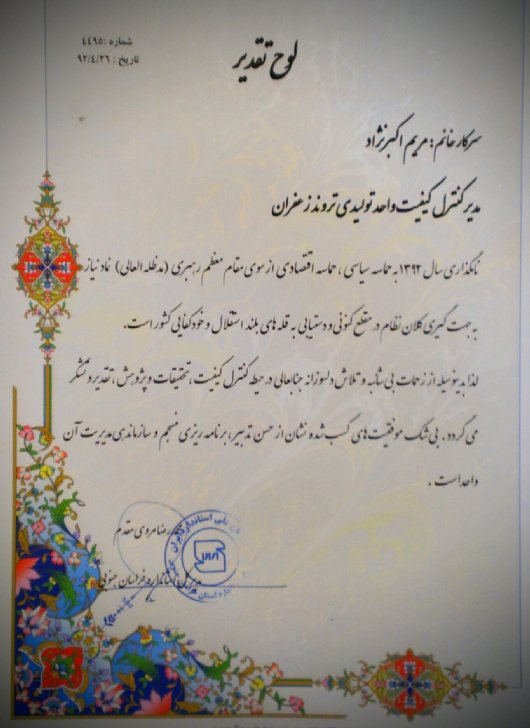 شماره : ۴۴۹۵
تاریخ : ۹۲/۴/۲۶
لوح تقدیر
سرکار خانم : مریم اکبرنژاد
مدیر کنترل کیفیت واحد تولیدی تروند زعفران
نامگذاری سال ۱۳۹۲ به حماسه سیاسی ، حماسه اقتصادی از سوی مقام معظم رهبری (مدظله العالی) نماد نیاز
به جهت گیری کلان نظام در مقطع کنونی و دستیابی به قله های بلند استقلال و خودکفایی کشور است.
لذا بدینوسیله از زحمات بی شائبه و تلاش دلسوزانه جنابعالی در حیطه کنترل کیفیت ، تحقیقات و پژوهش ، تقدیر و تشکر
می گردد . بی شک موفقیت های کسب شده نشان از حسن تدبیر، برنامه ریزی منسجم و سازماندهی مدیریت آن
واحد است .
رضا مروی مقدم
مدیر کل استاندارد خراسان جنوبی